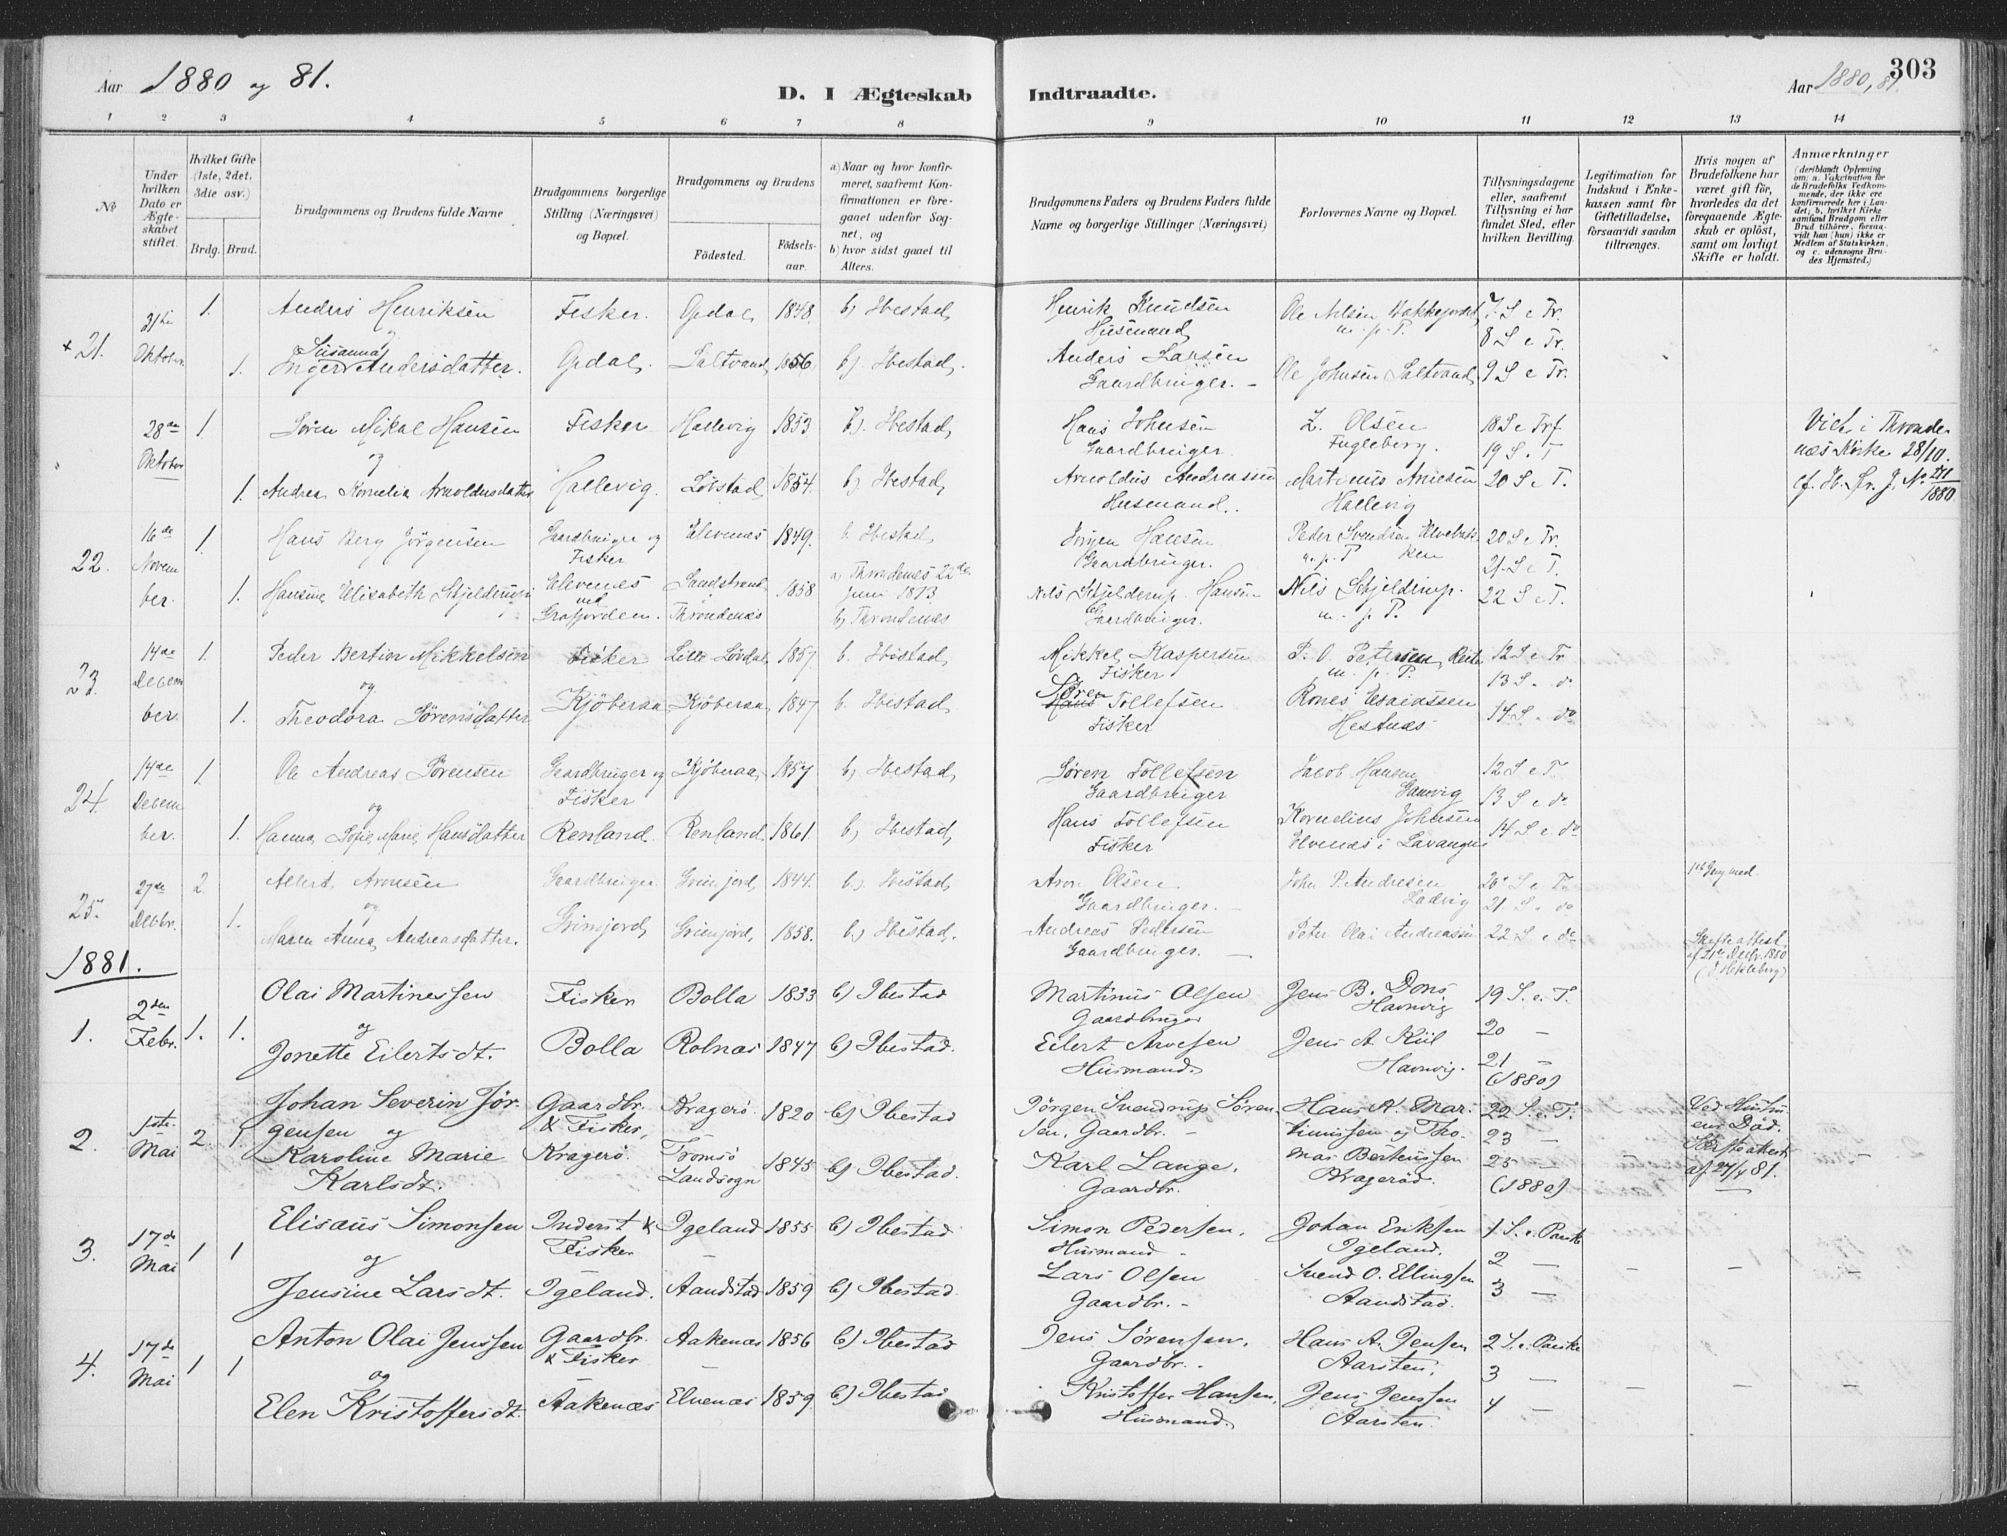 Aar 1880 og 81.
D. I Ægteskab Indtraadte.
Aar 1880, 81.
303
1 2 3 4 5 6 7 8 9 10 11 12 13 14
No
Under hvilken Dato er Ægteskabet stiftet.
Hvilket Gifte (1ste, 2det. 3die osv.)
Brdg. Brud.
Brudgommens og Brudens fulde Navne
Brudgommens borgerlige Stilling (Næringsvei) og Bopæl.
Brudgommens og Brudens
Födested.
Födselsaar.
a) Naar og hvor konfirmeret, saafremt Konfirmationen er foregaaet udenfor Sognet, og
b) hvor sidst gaaet til Alters.
Brudgommens Faders og Brudens Faders fulde Navne og borgerlige Stillinger (Næringsvei)
Forlovernes Navne og Bopæl.
Tillysningsdagene eller, saafremt Tillysning ei har fundet Sted, efter hvilken Bevilling.
Legitimation for Indskud i Enkekassen samt for Giftetilladelse, forsaavidt saadan tiltrænges.
Hvis nogen af Brudefolkene har været gift för, hvorledes da det foregaaende Ægteskab er oplöst, samt om lovligt Skifte er holdt.
Anmærkninger
(deriblandt Oplysning om: a. Vakcination for de Brudefolks Vedkommende, der ikke ere konfirmerede her i Landet; b, hvilket Kirkesamfund Brudgom eller Brud tilhörer, forsaavidt han (hun) ikke er Medlem af Statskirken, og c. udensogns Brudes Hjemsted.)
+ 21. 31te Oktober 1. Anders Henriksen Fisker. Gdal 1848. b) Ibestad Henrik Knudsen Husmand Ole Nilsen m. p. P. 7 S e Tr.
8 S e Tr.
og Susanna
1. Inger Andersdatter. Gdal Saltvand 1856 b). Ibestad. Anders Larsen Gaardbruger. Ole Johnsen Saltvand 9 S e Tr.
28de Oktober 1. Sören Mikal Hansen Fisker Hallevig 1853 b). Ibestad Hans Johnsen Gaardbruger. Z. Olsen Fugleberg. 18 S e Trf
19 S. T
Viet i Thronde
næs Kirke 28/10.
og
1. Andrea Kornelia Arnoldusdatter Hallevig. Löbstad 1854. b) Ibestad Arnoldus Andreassen Husmand. Martinus Hallevig 20 S e T.
1880
22. 16de November 1. Hans Berg Jörgensen Gaardbruger og Fisker Elvenæs 1849. b. Ibestad Jörgen Hansen Gaardbruger. Peder Svendsen m. p. P 20 S e Tr.
21. S e T.
1. Hansine Elisabeth Stjelderup Elvenæs ved Gratfjorden. Sandstrand i Throndenæs 1858 a) Throndenæs 22de Juni 1873
b) Throndenæs Nils Stjelderup Hansen Gaardbruger. Nils Stjelderup. m. p. P. 22 S e T.
23. 14de December. 1. Peder Bertion Mikkelsen Fisker Lille Lövdal 1857 b. Ibestad Mikkel Kaspersen Fisker P. O. Petersen m. p. P. 12 S e Tr
13 S. do
og
1. Theodora Sörensdatter Kjöberaa Kjöberaa 1847 b. Ibestad Sören Tollefsen Fisker Rones Esaiassen Hestnæs 14 S. do
24. 14de December. 1. Ole Andreas Sörensen Gaardbruger og Fisker Kjöberaa 1857 b) Ibestad Sören Tollefsen Gaardbruger Jacob Hansen Gamvig 12 S e T.
13 S e do
og
1. Hanna Sofie Marie Hansdatter Renland. Renland. 1861. b) Ibestad Hans Tollefsen Fisker Kornelius Johnsen Elvenæs i Lavangen 14 S e do
25. 27de Decbr. 2. Albert Aronsen Gaardbruger. Grimjord 1844. b) Ibestad Aron Olsen Gaardbruger. John P. Andresen Ladvig 20 S e Tr.
21. S. do
og
1. Maren Anna Andreasdatter. Grimjord Grimjord 1858. b) Ibestad. Andreas Pedersen Gaardbruger. Peter Olai Andreassen 22 S e do Skifteattest
af 21de Decbr. 1880
1881.
1. 2den Febr. 1. 1. Olai Martinessen Fisker Bolla 1833 b) Ibestad Martinus Olsen Gaardbruger Jens B. Dons Havnvig 19 S. e. T.
og
Jonette Eilertsdt. Bolla Rolnæs 1847 b) Ibestad. Eilert Arvesen Husmand. Jens A Kiil Havnvig. 20 —
21
(1880)
2. 1ste Mai 2. 1. Johan Severin Jörgensen og Gaardbr. & Fisker, Kragerö 1820 b) Ibestad Jörgen Svendrup Sörensen, Gaardbr. Hans A. Marinussen og Tho- 22 S. e. T.
23 —
Ved Hustruens Död.
Karoline Marie Karlsdt. Kragerö. Tromsö Landsogn 1845 b) Ibestad. Karl Lange, Gaardbr. mas Berteussen Krageröd. 25 —
(1880)
Skifteattest
af 27/4 81.
3. 17de Mai 1 1 Elisæus Simonsen Inderst & Fisker Igeland 1855 b) Ibestad Simon Pedersen, Husmand Johan Eriksen Igeland. 1 S. e. Paaske
2 —
og
Jensine Larsdt. Igeland. Aandstad 1859 b) Ibestad. Lars Olsen Gaardbr. Svend O. Ellingsen Aandstad. 3 —
4. 17de Mai 1 1 Anton Olai Jenssen Gaardbr. & Fisker Aakenæs 1856 b) Ibestad Jens Sörensen, Gaardbr. Hans A. Jensen Aarsten, 2 S. e. Paaske
3 —
og
Elen Kristoffersdt. Aakenæs Elvenæs 1859 b) Ibestad Kristoffer Hansen, Husmand. Jens Jenssen Aarsten. 4 —